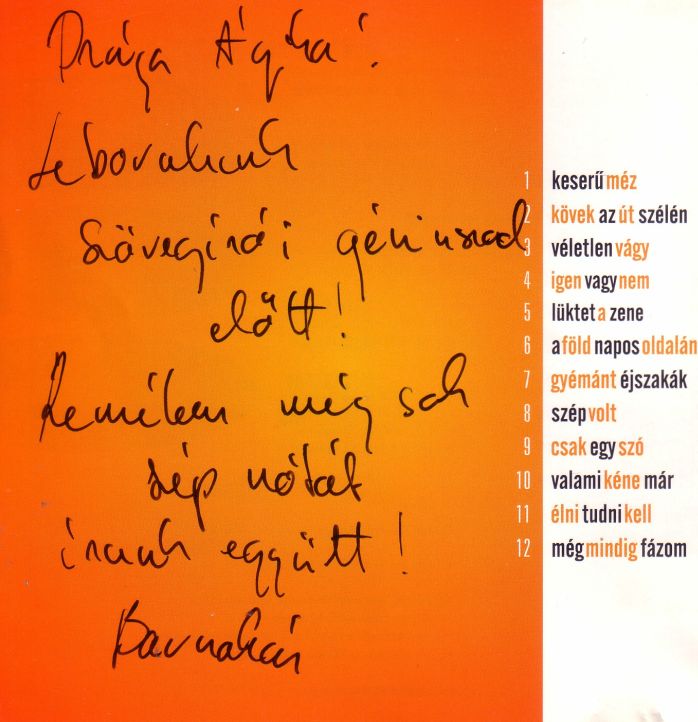 Drága Ágika!
Leborulunk
Szövegírói géniuszod
előtt!
Remélem még sok
szép nótát
írunk együtt!
1 keserű méz
2 kövek az út szélén
3 véletlen vágy
4 igen vagy nem
5 lüktet a zene
6 a föld napos oldalán
7 gyémánt éjszakák
8 szép volt
9 csak egy szó
10 valami kéne már
11 élni tudni kell
12 még mindig fázom